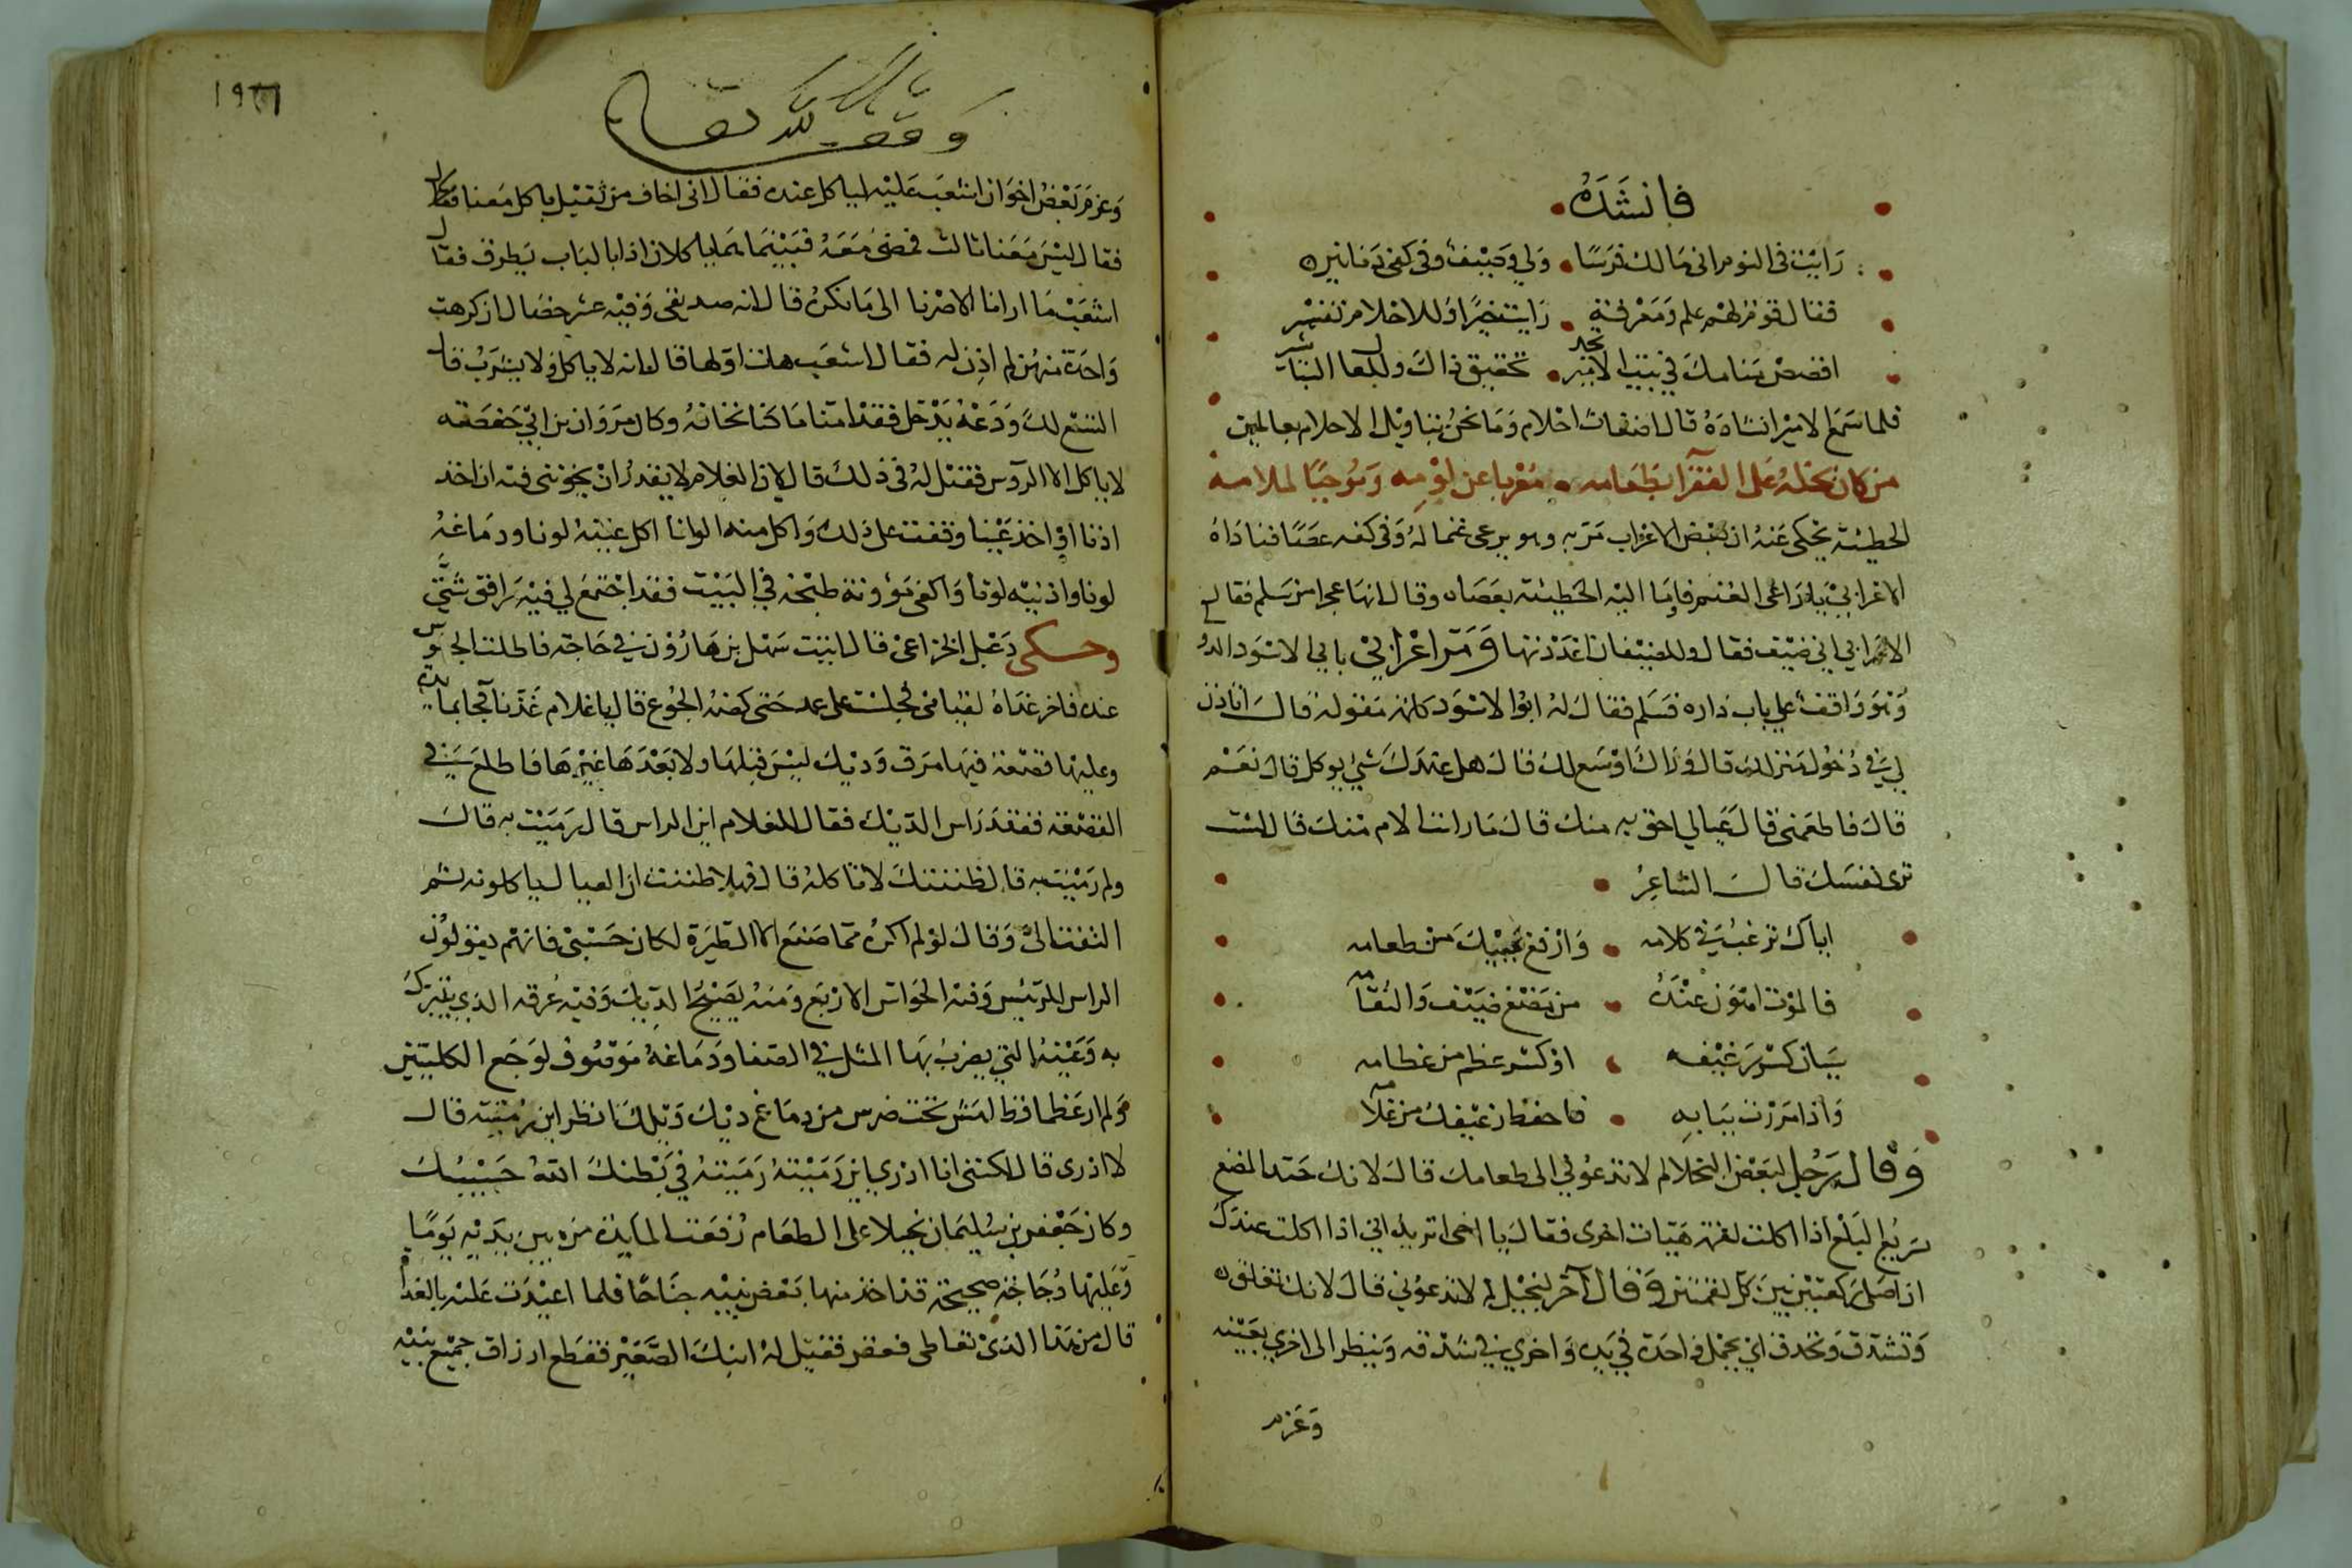 فانشده
رايت في النوم اني مالك فرسا ولي وصيف وفي كفي دنانير
فقال قوم لهم علم ومعرفة رايت خيرا وللاحلام تفسير
اقصص منامك في بيت الامير تجد تحقيق ذاك وللفال التباشير
فلما سمع الامير انشاده قال اضغاث احلام وما نحن بتاويل الاحلام بعالمين
من كان بخله على الفقرا بطعامه معربا عن لومه وموجبا لملامه
الحطيئة يحكى عنه ان بعض الاعراب مر به وهو يرعى غنما له وفي كفه عصا فناداه
الاعرابي يا راعي الغنم فاوما اليه الحطيئة بعصاه وقال انها عجرا من سلم فقال
الاعرابي اني ضيف فقال وللضيفان اعددتها ومر اعرابي بابي الاسود الد
وهو واقف علي باب داره فسلم فقال له ابو الاسود كلمة مقولة قال اتاذن
لي في دخول منزلك قال وراك اوسع لك قال هل عندك شي يوكل قال نعم
قال فاطعمني قال عيالي احق به منك قال ما رايت الام منك قال لست
ترى نفسك قال الشاعر
اياك ترغب في كلامه وارفع يمينك من طعامه
فالموت اهون عنده من مضغ ضيف والتقامه
سيان كسر رغيفه او كسر عظم من عظامه
واذا مررت ببابه فاحفظ رغيفك من غلامه
وقال رجل لبعض البخلا لم لا تدعوني الى طعامك قال لانك جيد المضغ
سريع البلع اذا اكلت لقمة هيات اخرى فقال يا اخي اتريد اني اذا اكلت عندك
ان اصلي ركعتين بين كل لقمتين وقال آخر لبخيل لم لا تدعوني قال لانك تعلق
وتشدق وتحدق اي يجعل واحدة في يده واخري في شدقه وينظر الى اخري بعينه
وعزم
١٩٦
وقف لله تعالى
وعزم بعض اخوان اشعب عليه لياكل عنده فقال اني اخاف من ثقيل ياكل معنا
فقال ليس معنا ثالث فمضى معه فبينما هما ياكلان اذا بالباب يطرق فقال
اشعب ما ارانا الا صرنا الى ما نكره قال انه صديقي وفيه عشر خصال ان كرهت
واحدة منهن لم اذن له فقال اشعب هات اولها قال انه لا ياكل ولا يشرب قال
التسع لك ودعه يدخل فقد امنا ما كنا نخافه وكان مروان بن ابي حفصة
لا ياكل الا الروس فقيل له في ذلك قال لان الغلام لا يقدر ان يخونني فيه ان اخذ
اذنا او اخذ عينا وقفت على ذلك واكل منه الوانا اكل عينيه لونا ودماغه
لونا واذنيه لونا واكفي مؤونة طبخه في البيت فقد اجتمع لي فيه مرافق شتى
وحكى دعبل الخزاعي قال اتيت سهل بن هارون في حاجة فاطلت الجلوس
عنده فاخر غداه لقيامي فجلست على عمد حتى كضه الجوع قال يا غلام غدنا فجا بمايدة
وعليها قصعة فيها مرق وديك ليس قبلها ولا بعدها غيرها فاطلع في
القصعة ففقد راس الديك فقال للغلام اين الراس قال رميت به قال
ولم رميت به قال ظننتك لا تاكله قال فهلا ظننت ان العيال ياكلونه ثم
التفت الي وقال لو لم اكره مما صنع الا الطيرة لكان حسبي فانهم يقولون
الراس للرئيس وفيه الحواس الاربع ومنه يصيح الديك وفيه عرفه الذي يتبرك
به وعينه التي يضرب بها المثل في الصفا ودماغه موصوف لوجع الكليتين
ولم ار عظما قط الهش تحت ضرس من دماغ ديك ويلك انظر اين رميته قال
لا ادري قال لكنني انا ادري اين رميته رميته في بطنك الله حسيبك
وكان جعفر بن سليمان بخيلا على الطعام رفعت المايدة من بين يديه يوما
وعليها دجاجة صحيحة قد اخذ منها بعض بنيه جناحا فلما اعيدت عليه بالغد
قال من هذا الذي تعاطى فعقر فقيل له ابنك الصغير فقطع ارزاق جميع بنيه